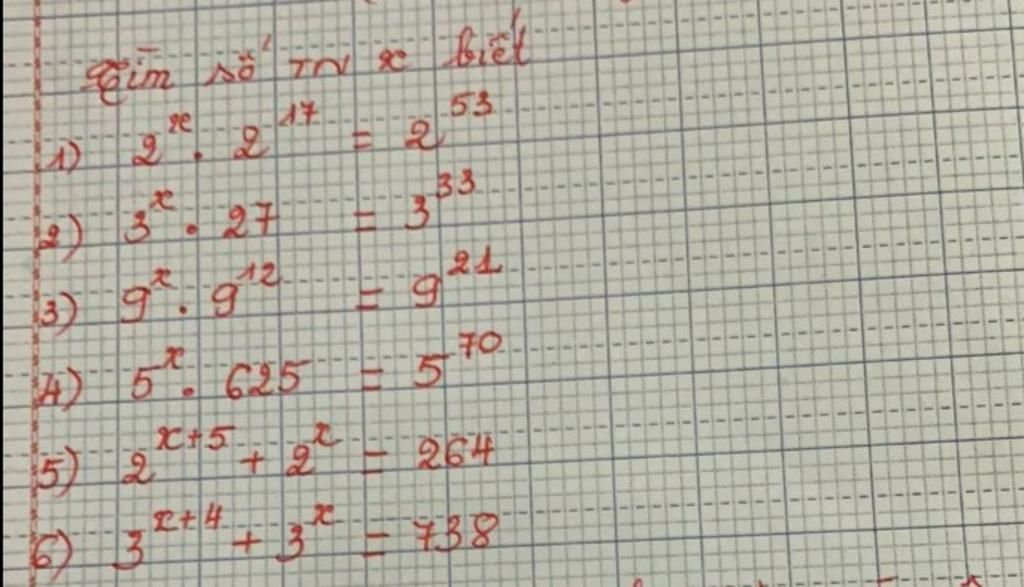 Tìm số TN x biết
1) 2^x . 2^17 = 2^53
2) 3^x . 27 = 3^33
3) 9^x . 9^12 = 9^21
4) 5^x . 625 = 5^70
5) 2^(x+5) + 2^x = 264
6) 3^(x+4) + 3^x = 738